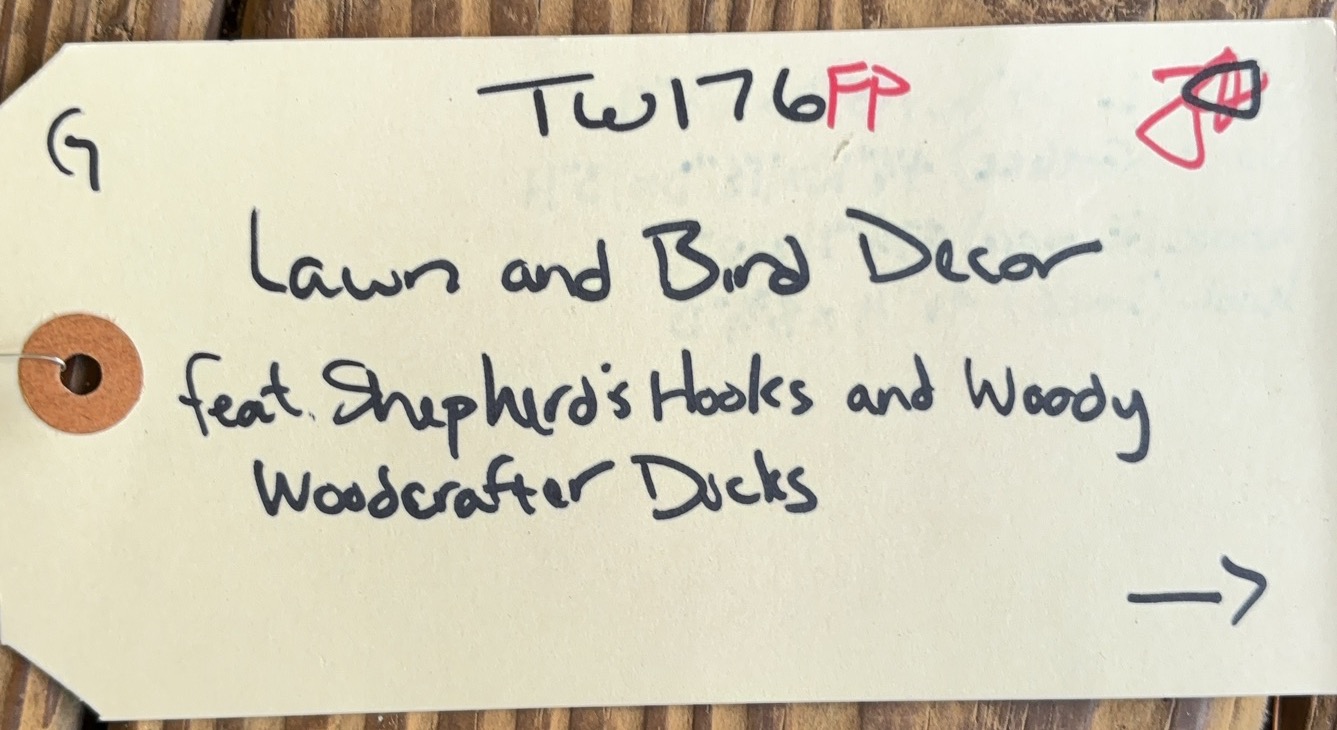 G
TW176FP
Lawn and Bird Decor
feat. Shepherd's Hooks and Woody
Woodcrafter Ducks
→